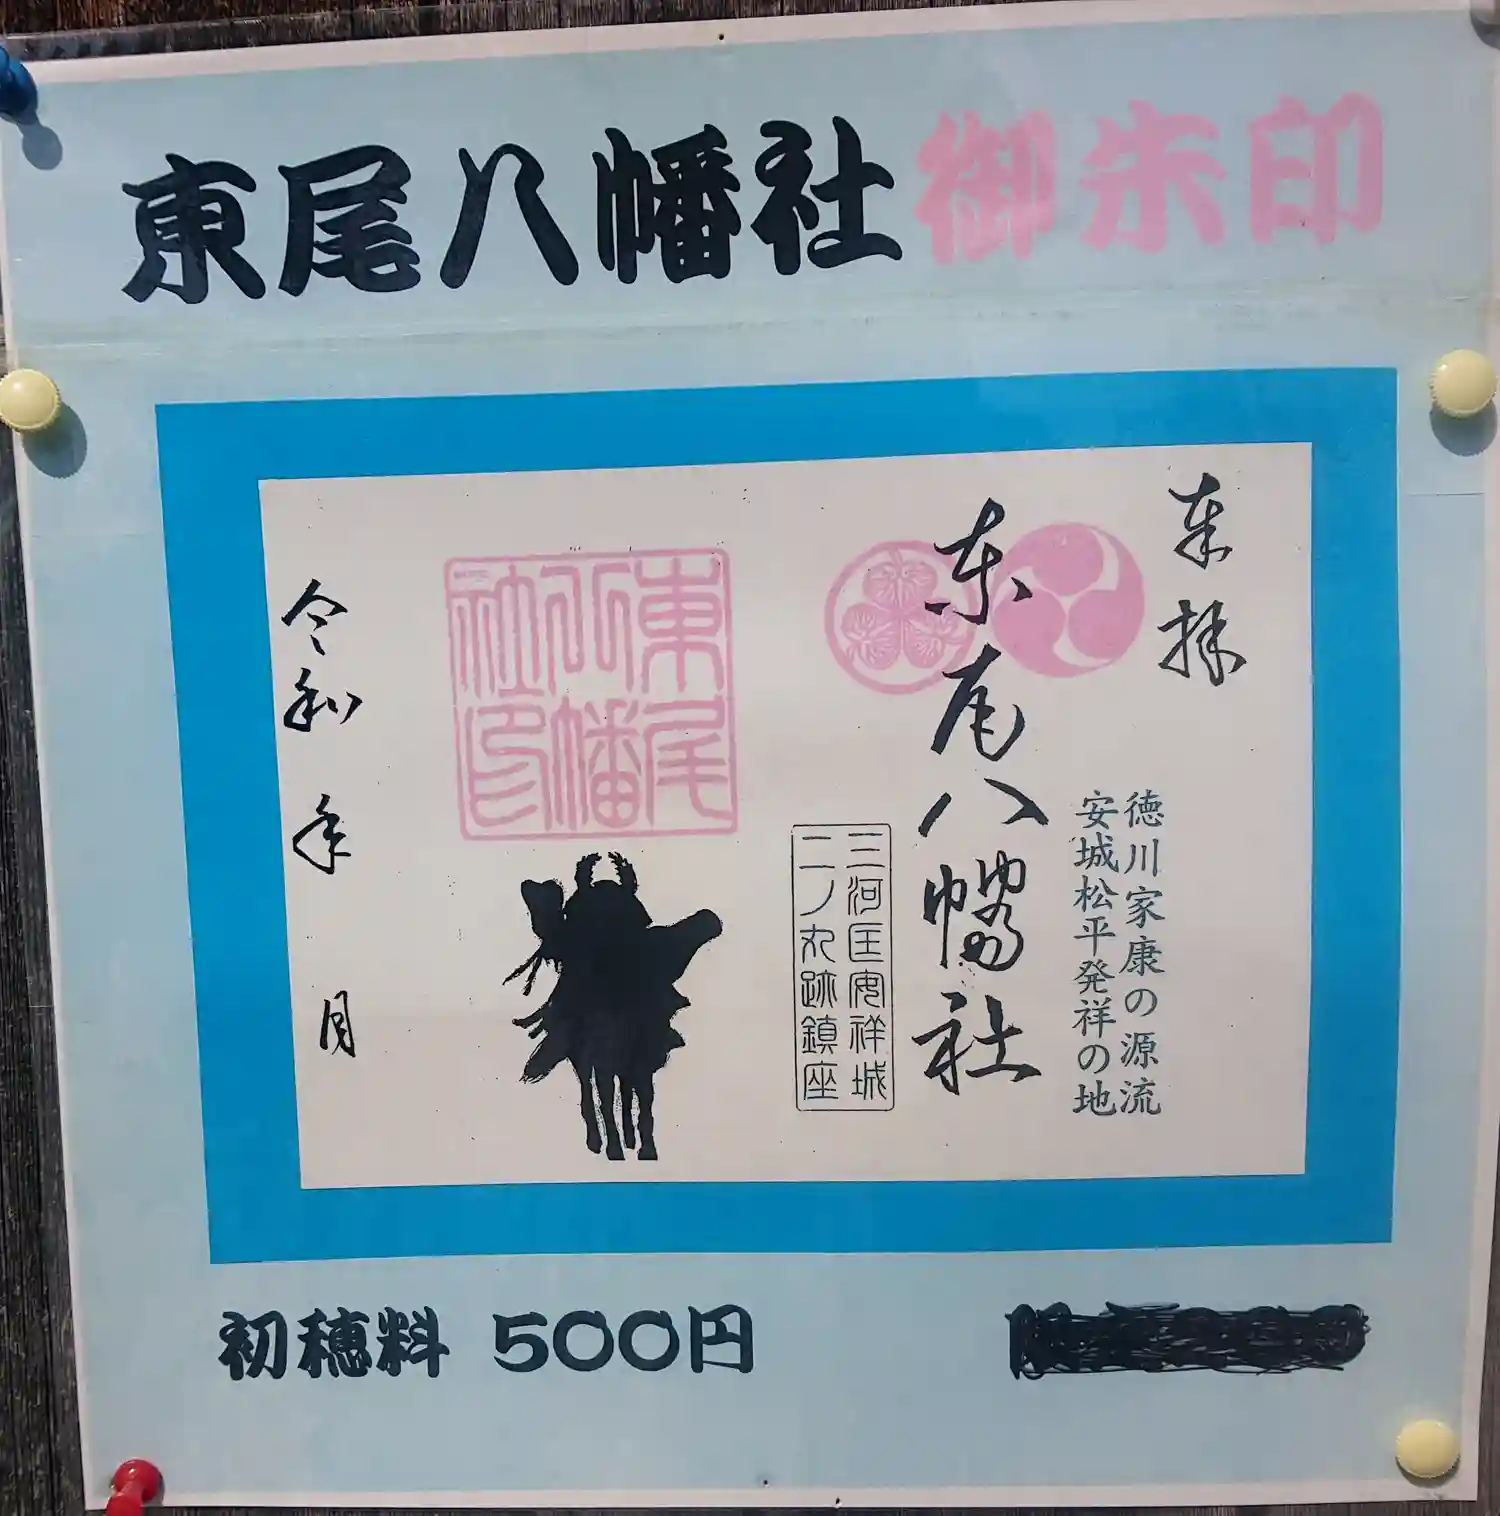 東尾八幡社御朱印
奉拝
徳川家康の源流
安城松平発祥の地
東尾八幡社
三河国安祥城
二ノ丸跡鎮座
東尾
八幡
社印
令和 年 月
初穂料 500円